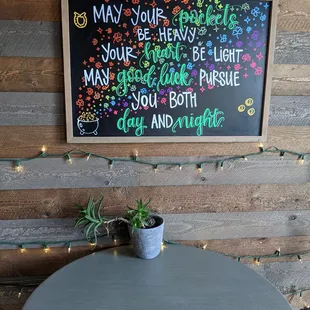 MAY YOUR pockets
BE HEAVY
YOUR heart BE LIGHT
MAY good luck PURSUE
YOU BOTH
day AND night.